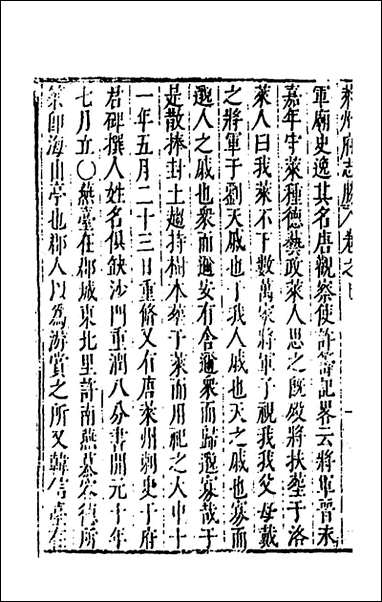 萊州府志勝八卷之七
軍廟史逸其名唐觀察使許籌記畧云將軍晉永
嘉年牢萊種德藝政萊人思之旣歿將扶葬于洛
萊人曰我萊不下數萬家將軍子視我我父母戴
之將軍于劉天戚也于我人戚也天之戚也寡而
邇人之戚也衆而邇安有舍邇衆而歸邇寡哉于
是散捧封土趨持樹木葬于萊而用祀之大中十
一年五月二十三日重修又有唐萊州刺史于府
君碑撰人姓名俱缺沙門重潤八分書開元十年
七月立○燕臺在郡城東北里許南燕慕容德所
築即海山亭也郡人以為游賞之所又韓信亭在